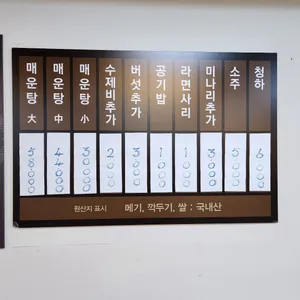 매운탕 大 58000
매운탕 中 44000
매운탕 小 34000
수제비추가 2000
버섯추가 3000
공기밥 1000
라면사리 1000
미나리추가 3000
소주 5000
청하 6000
원산지 표시 메기, 깍두기, 쌀 : 국내산